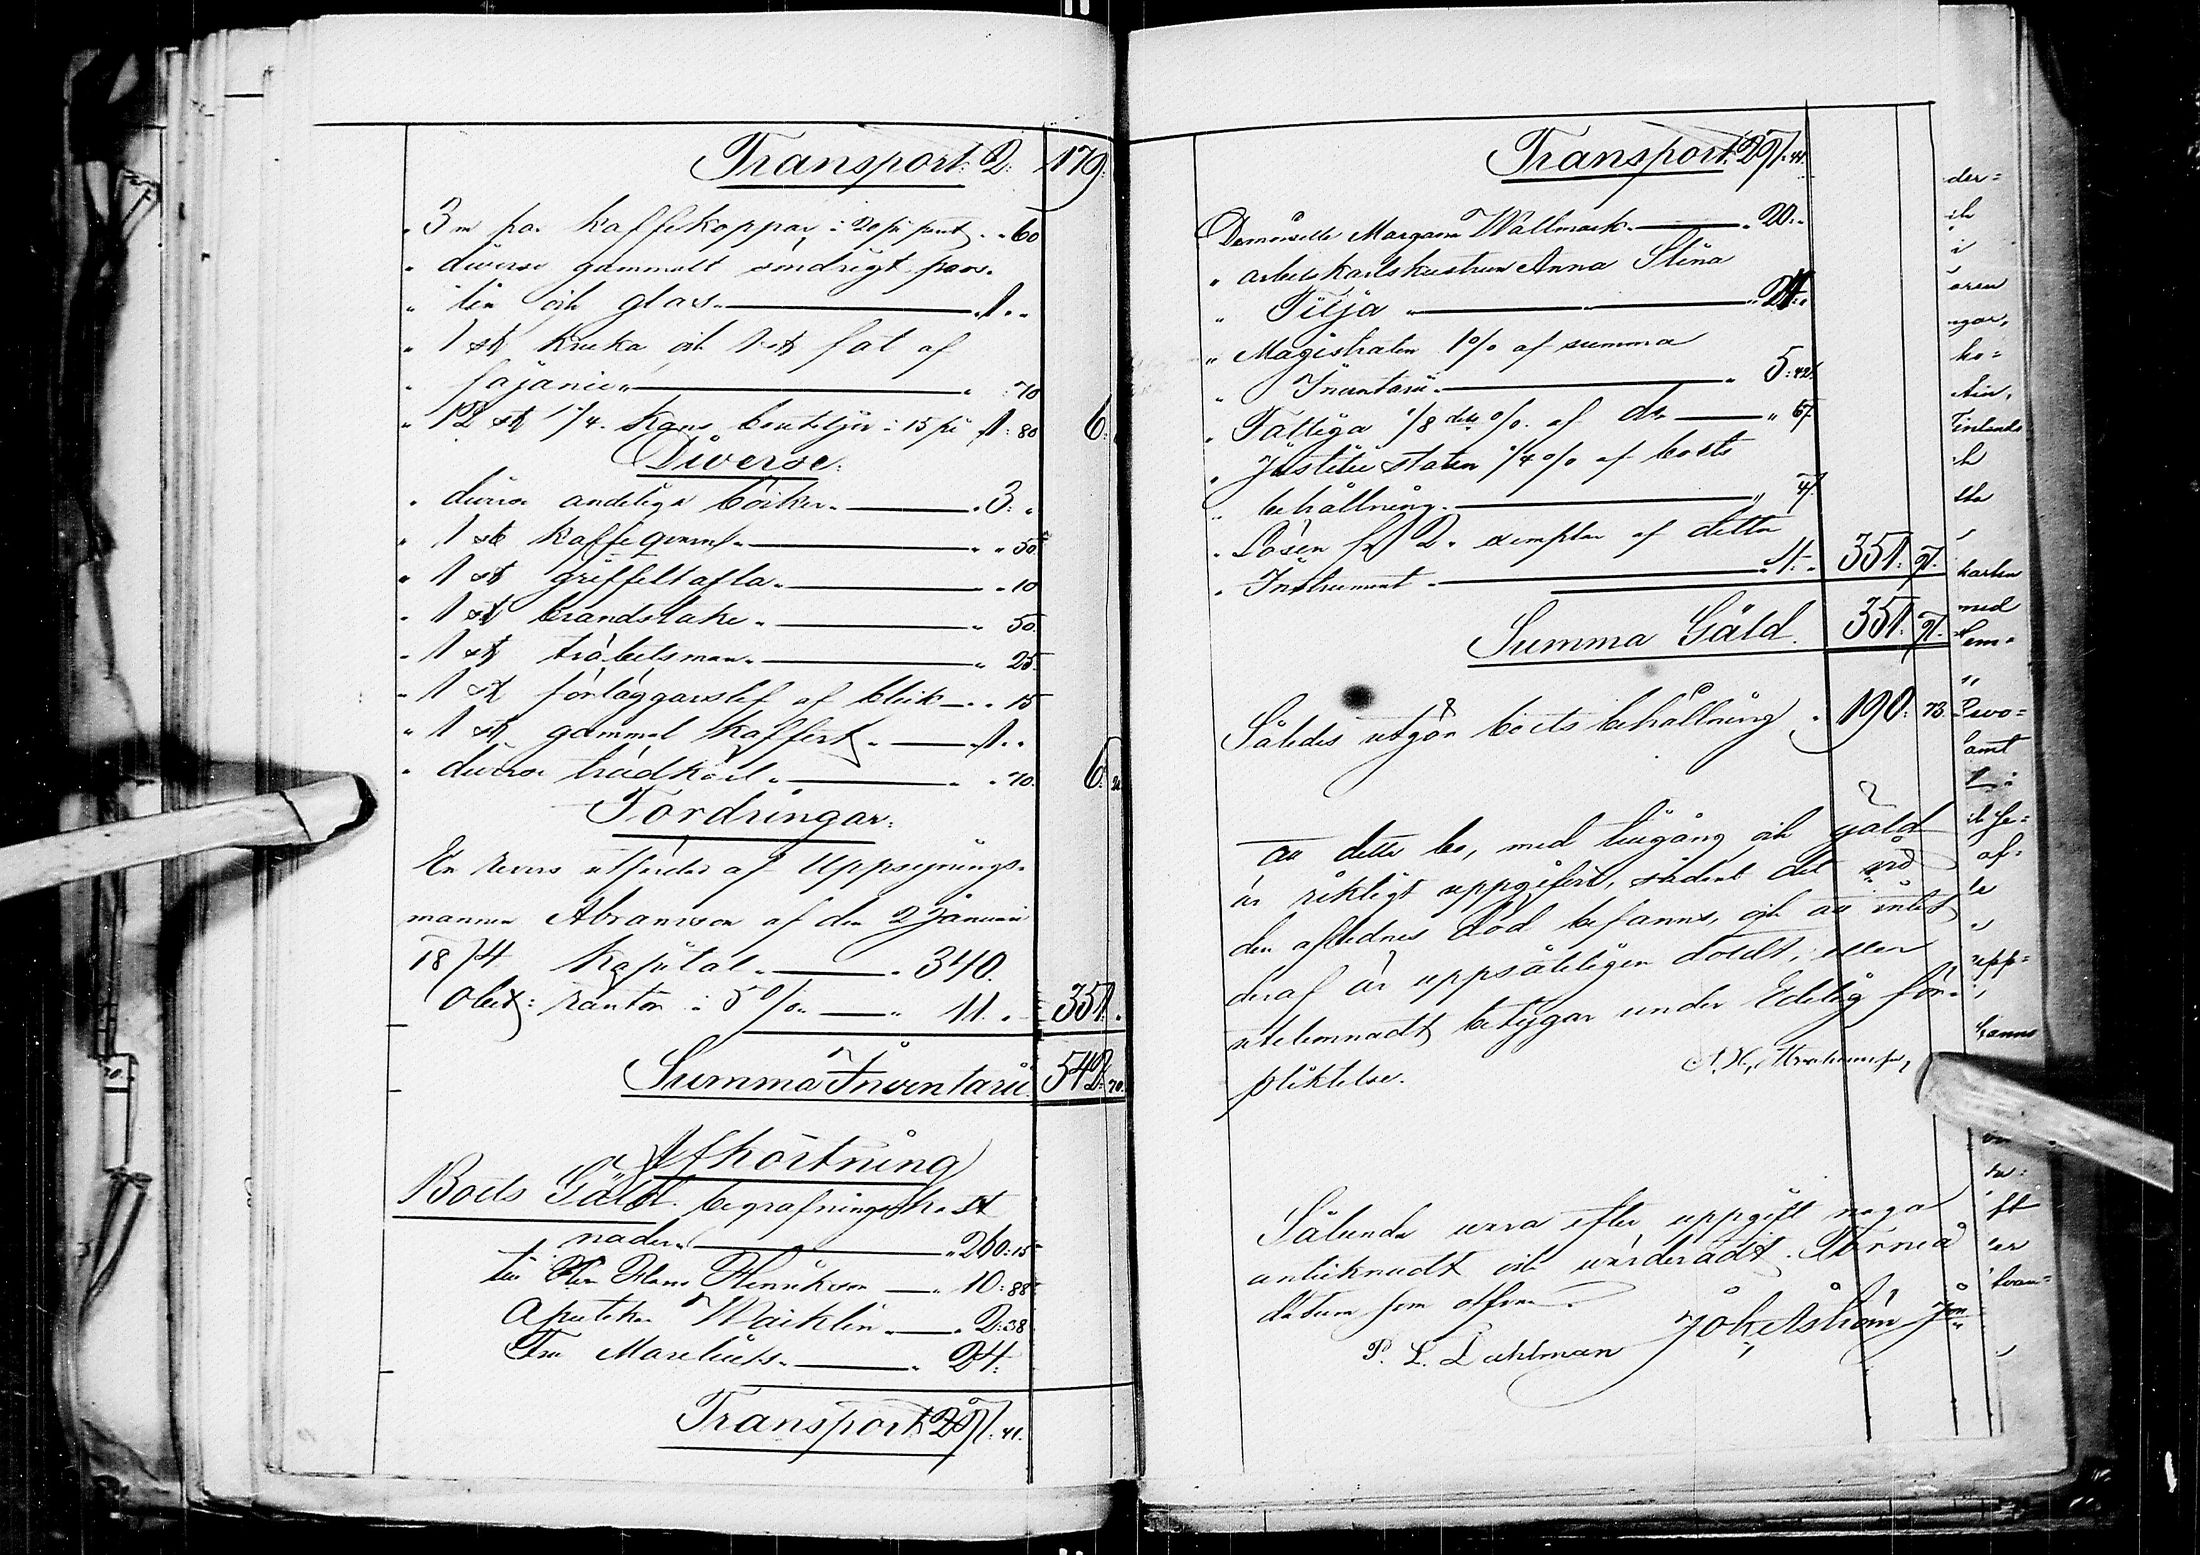 Transport. 2. 179.
" 3 par kaffekoppar á 20 pi " " 60
" diverse gammalt söndrigt pors-
" lin och glas. " 1. "
" 1 st kruka och 1 st fat af
" fajance " 70
" 12 st 1/4 kans bouteljer á 15 pi 1: 80 6.
Diverse.
" diverse andeliga böcker. " 3. "
" 1 st kaffeqvarn " " 50
" 1 st griffeltafla " " 10
" 1 st brandstake " " 50.
" 1 st träbetsman " 25.
" 1 st förläggarslef af bleck " 15
" 1 st gammal koffert " 1. "
" diverse trädkärl " " 70. 6. 20
Fordringar.
En revers utfärdad af Uppsynings-
mannen Abramson af den 2 Januari
1874 Kapital. " 340.
Obet: räntor á 5 % " 11. " 351. "
Summa Inventarii 542. 70.
Afkortning
Boets Gäld. begrafningskost
nader " 260: 15
till Hans Henrikson " 10: 88
Apotekar " 2: 38
Fru " 24:
Transport 297. 41.
Transport. 297. 41.
Demoiselle Wallmark " 20. "
" arbetskarlshustrun Anna Stina
" Tilja " 24. "
" Magistraten 1 % af summa
" Inventarii " 5: 42.
" Fattiga 1/8 dels % af do " 67
" Justitie staten 1/4 % af boets
" behållning " 47.
" Lösen för 2 exemplar af detta
" Instrument " 1. " 351. 97.
Summa Gäld. 351. 97.
Således utgör boets behållning " 190. 73.
Att detta bo, med tillgång och gäld
är riktigt uppgifvit, sådant det vid
den aflednes död befanns, och att intet
deraf är uppsåteligen doldt, eller
utelemnadt betygar under Edelig för-
pliktelse.
Sålunda vara efter uppgift noga
antecknadt och värderadt. Torneå
datum som ofvan.
P. L. Dahlman Joh. Åström
der=
ch
i
aren
gar,
ho=
Finlands
med
samt
af=
upp=